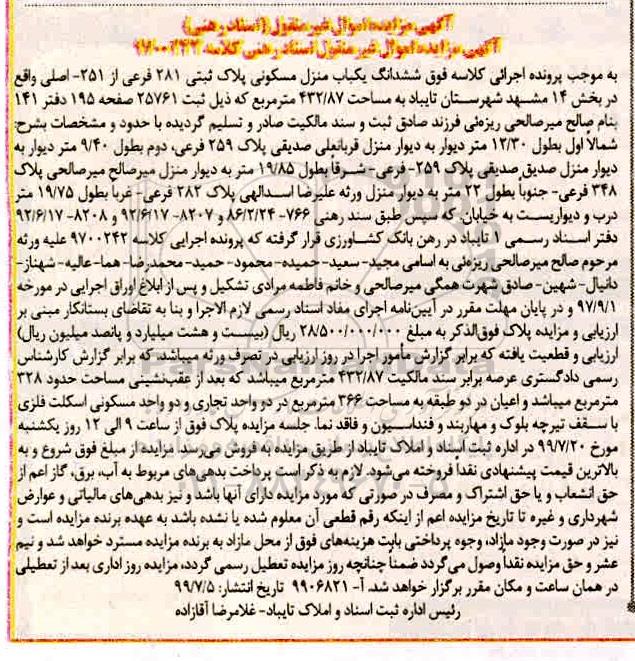 آگهی مزایده اموال غیر منقول (اسناد رهنی)
آگهی مزایده اموال غیر منقول اسناد رهنی کلاسه ۹۷۰۰۲۴۲
به موجب پرونده اجرائی کلاسه فوق ششدانگ یکباب منزل مسکونی پلاک ثبتی ۲۸۱ فرعی از ۲۵۱- اصلی واقع
در بخش ۱۴ مشهد شهرستان تایباد به مساحت ۴۳۲/۸۷ مترمربع که ذیل ثبت ۲۵۷۶۱ صفحه ۱۹۵ دفتر ۱۴۱
بنام صالح میرصالحی ریزه‌ئی فرزند صادق ثبت و سند مالکیت صادر و تسلیم گردیده با حدود و مشخصات بشرح:
شمالاً اول بطول ۱۲/۳۰ متر دیوار به دیوار منزل قربانعلی صدیقی پلاک ۲۵۹ فرعی، دوم بطول ۹/۴۰ متر دیوار به
دیوار منزل صدیق صدیقی پلاک ۲۵۹- فرعی- شرقاً بطول ۱۹/۸۵ متر به دیوار منزل میرصالح میرصالحی پلاک
۳۴۸ فرعی- جنوباً بطول ۲۲ متر به دیوار منزل ورثه علیرضا اسدالهی پلاک ۲۸۲ فرعی- غرباً بطول ۱۹/۷۵ متر
درب و دیواریست به خیابان. که سپس طبق سند رهنی ۷۶۶- ۸۶/۲/۲۴ و ۸۲۰۷- ۹۲/۶/۱۷ و ۸۲۰۸- ۹۲/۶/۱۷
دفتر اسناد رسمی ۱ تایباد در رهن بانک کشاورزی قرار گرفته که پرونده اجرایی کلاسه ۹۷۰۰۲۴۲ علیه ورثه
مرحوم صالح میرصالحی ریزه‌ئی به اسامی مجید- سعید- حمیده- محمود- حمید- محمدرضا- هما- عالیه- شهناز-
دانیال- شهین- صادق شهرت همگی میرصالحی و خانم فاطمه مرادی تشکیل و پس از ابلاغ اوراق اجرایی در مورخه
۹۷/۹/۱ و در پایان مهلت مقرر در آیین‌نامه اجرای مفاد اسناد رسمی لازم الاجرا و بنا به تقاضای بستانکار مبنی بر
ارزیابی و مزایده پلاک فوق‌الذکر به مبلغ ۲۸/۵۰۰/۰۰۰/۰۰۰ ریال (بیست و هشت میلیارد و پانصد میلیون ریال)
ارزیابی و قطعیت یافته که برابر گزارش مأمور اجرا در روز ارزیابی در تصرف ورثه میباشد. که برابر گزارش کارشناس
رسمی دادگستری عرصه برابر سند مالکیت ۴۳۲/۸۷ مترمربع میباشد که بعد از عقب‌نشینی مساحت حدود ۳۲۸
مترمربع میباشد و اعیان در دو طبقه به مساحت ۳۶۶ مترمربع در دو واحد تجاری و دو واحد مسکونی اسکلت فلزی
با سقف تیرچه بلوک و مهاربند و فنداسیون و فاقد نما. جلسه مزایده پلاک فوق از ساعت ۹ الی ۱۲ روز یکشنبه
مورخ ۹۹/۷/۲۰ در اداره ثبت اسناد و املاک تایباد از طریق مزایده به فروش می‌رسد. مزایده از مبلغ فوق شروع و به
بالاترین قیمت پیشنهادی نقداً فروخته می‌شود. لازم به ذکر است پرداخت بدهی‌های مربوط به آب، برق، گاز اعم از
حق انشعاب و یا حق اشتراک و مصرف در صورتی که مورد مزایده دارای آنها باشد و نیز بدهی‌های مالیاتی و عوارض
شهرداری و غیره تا تاریخ مزایده اعم از اینکه رقم قطعی آن معلوم شده یا نشده باشد به عهده برنده مزایده است و
نیز در صورت وجود مازاد، وجوه پرداختی بابت هزینه‌های فوق از محل مازاد به برنده مزایده مسترد خواهد شد و نیم
عشر و حق مزایده نقداً وصول می‌گردد ضمناً چنانچه روز مزایده تعطیل رسمی گردد، مزایده روز اداری بعد از تعطیلی
در همان ساعت و مکان مقرر برگزار خواهد شد. آ- ۹۹۰۶۸۲۱ تاریخ انتشار: ۹۹/۷/۵
رئیس اداره ثبت اسناد و املاک تایباد- غلامرضا آقازاده